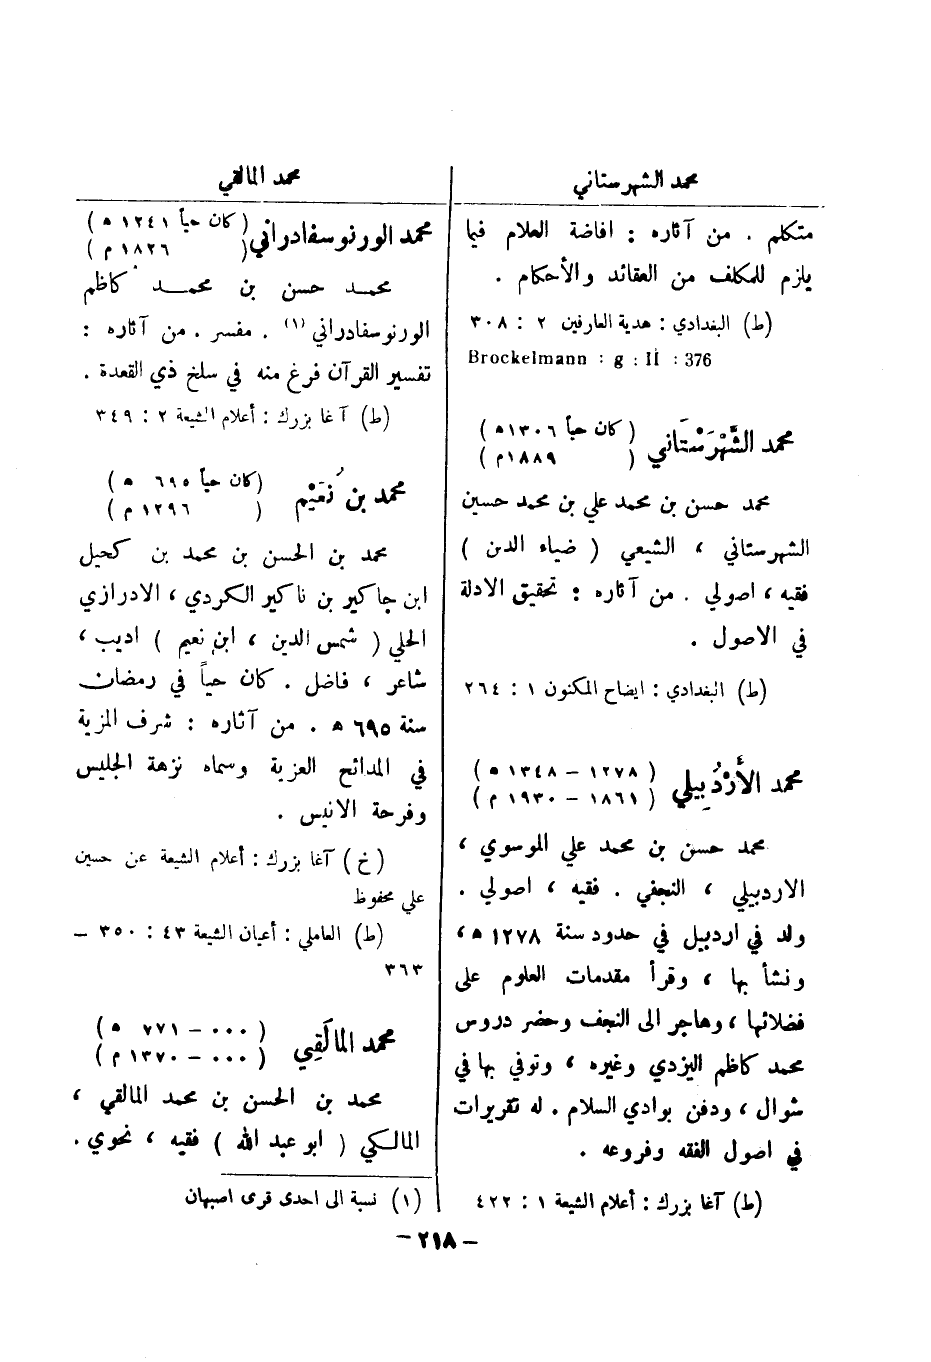 محمد الشهرستاني
متكلم . من آثاره : افاضة العلام فيما
يلزم للمكلف من العقائد والأحكام .
(ط) البغدادي : هدية العارفين ٢ : ٣٠٨
Brockelmann : g : II : 376
محمد الشَّهْرَسْتَاني ( كان حياً ١٣٠٦ ه )
( ١٨٨٩م )
محمد حسن بن محمد علي بن محمد حسين
الشهرستاني ، الشيعي ( ضياء الدين )
فقيه ، اصولي . من آثاره : تحقيق الادلة
في الاصول .
(ط) البغدادي : ايضاح المكنون ١ : ٢٦٤
محمد الأَرْدُبِيلي ( ١٢٧٨ – ١٣٤٨ ه )
( ١٨٦١ – ١٩٣٠ م )
محمد حسن بن محمد علي الموسوي ،
الاردبيلي ، النجفي . فقيه ، اصولي .
ولد في اردبيل في حدود سنة ١٢٧٨ ه ،
ونشأ بها ، وقرأ مقدمات العلوم على
فضلائها ، وهاجر الى النجف وحضر دروس
محمد كاظم اليزدي وغيره ، وتوفي بها في
شوال ، ودفن بوادي السلام . له تقريرات
في اصول الفقه وفروعه .
(ط) آغا بزرك : أعلام الشيعة ١ : ٤٢٢
محمد المالقي
محمد الورنوسفادراني ( كان حياً ١٢٤١ ه )
( ١٨٢٦ م )
محمد حسن بن محمد كاظم
الورنوسفادراني (١) . مفسر . من آثاره :
تفسير القرآن فرغ منه في سلخ ذي القعدة .
(ط) آغا بزرك : أعلام الشيعة ٢ : ٣٤٩
محمد بن نُعَيْم ( كان حياً ٦٩٥ ه )
( ١٢٩٦ م )
محمد بن الحسن بن محمد بن كحيل
ابن جاكير بن ناكير الكردي ، الادرازي
الحلي ( شمس الدين ، ابن نعيم ) اديب ،
شاعر ، فاضل . كان حياً في رمضان
سنة ٦٩٥ ه . من آثاره : شرف المزية
في المدائح العزية وسماه نزهة الجليس
وفرحة الانيس .
(خ) آغا بزرك : أعلام الشيعة عن حسين
علي محفوظ
(ط) العاملي : أعيان الشيعة ٤٣ : ٣٥٠ –
٣٦٣
محمد المالَقِي ( ٠٠٠ – ٧٧١ ه )
( ٠٠٠ – ١٣٧٠ م )
محمد بن الحسن بن محمد المالقي ،
المالكي ( ابو عبد الله ) فقيه ، نحوي .
(١) نسبة الى احدى قرى اصبهان
– ٢١٨ –